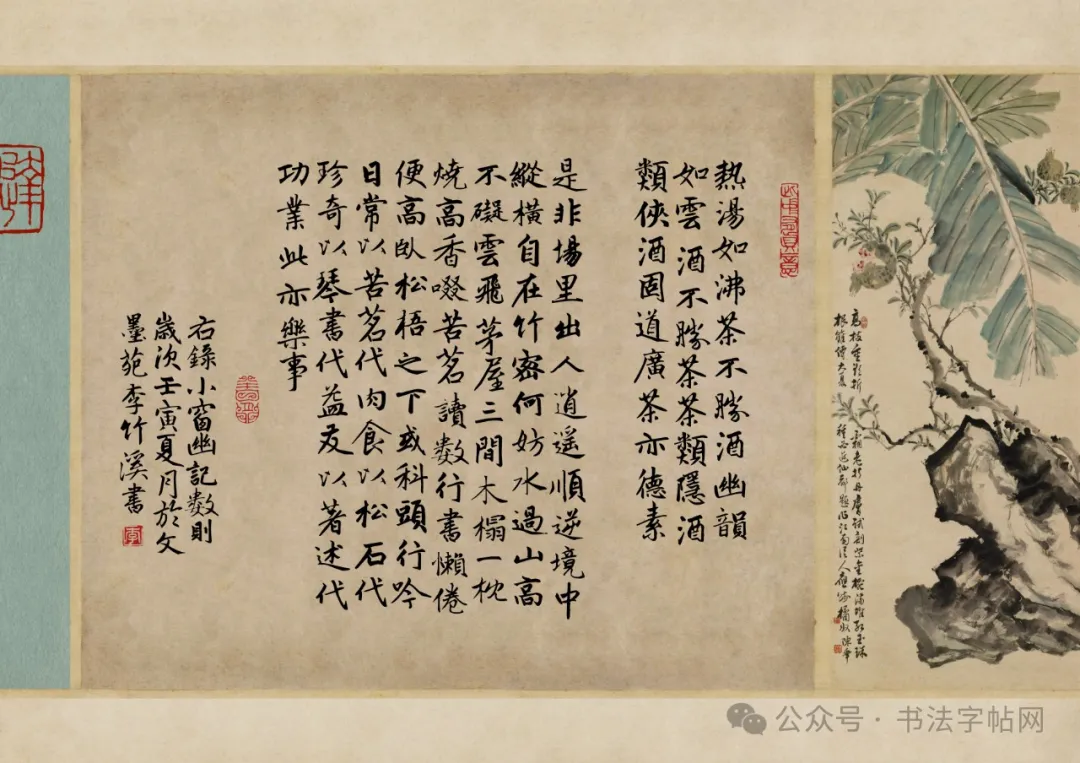 此中有真意
熱湯如沸茶不勝酒幽韻
如雲酒不勝茶茶類隱酒
類俠酒固道廣茶亦德素
是非場里出人逍遙順逆境中
縱橫自在竹密何妨水過山高
不礙雲飛茅屋三間木榻一枕
燒高香啜苦茗讀數行書懶倦
便高臥松梧之下或科頭行吟
日常以苦茗代肉食以松石代
珍奇以琴書代益友以著述代
功業此亦樂事
右錄小窗幽記數則
歲次壬寅夏月於文
墨苑李竹溪書
公众号·书法字帖网